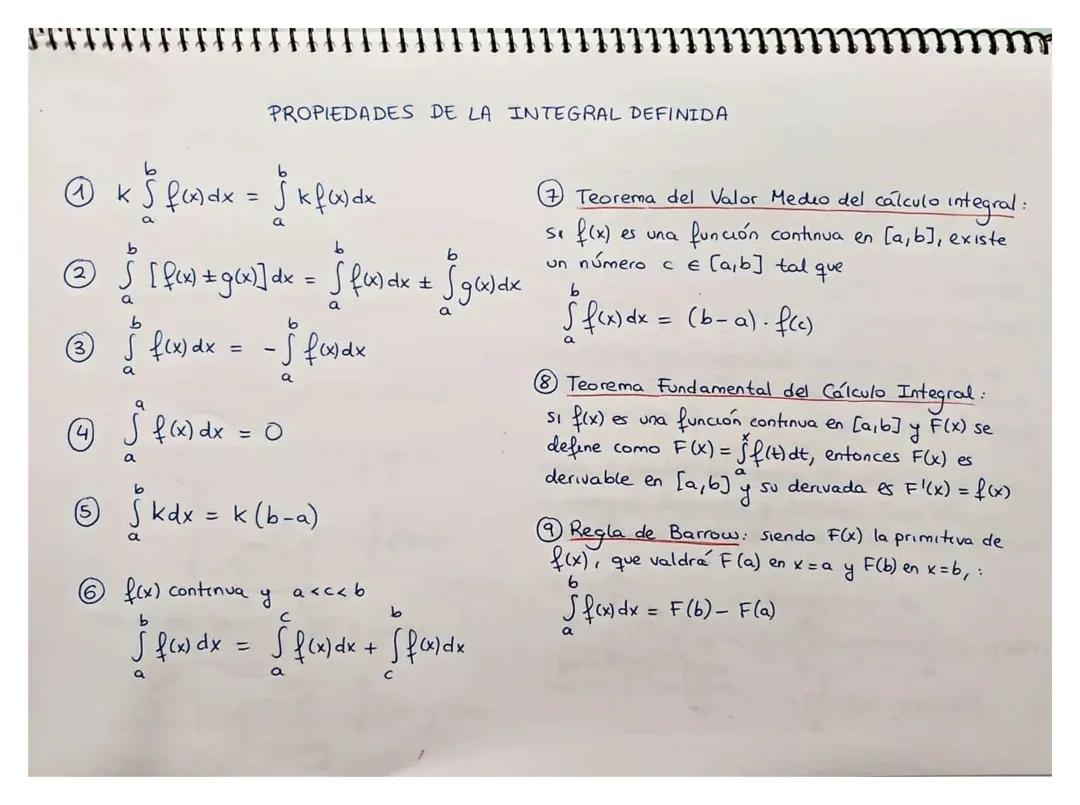 PROPIEDADES DE LA INTEGRAL DEFINIDA
① k ∫_a^b f(x) dx = ∫_a^b k f(x) dx
② ∫_a^b [f(x) ± g(x)] dx = ∫_a^b f(x) dx ± ∫_a^b g(x) dx
③ ∫_a^b f(x) dx = - ∫_a^b f(x) dx
④ ∫_a^a f(x) dx = 0
⑤ ∫_a^b k dx = k (b-a)
⑥ f(x) continua y a<c<b
∫_a^b f(x) dx = ∫_a^c f(x) dx + ∫_c^b f(x) dx
⑦ Teorema del Valor Medio del cálculo integral:
si f(x) es una función continua en [a,b], existe
un número c ∈ [a,b] tal que
∫_a^b f(x) dx = (b-a) · f(c)
⑧ Teorema Fundamental del Cálculo Integral:
si f(x) es una función continua en [a,b] y F(x) se
define como F(x) = ∫_a^x f(t) dt, entonces F(x) es
derivable en [a,b] y su derivada es F'(x) = f(x)
⑨ Regla de Barrow: siendo F(x) la primitiva de
f(x), que valdrá F(a) en x=a y F(b) en x=b, :
∫_a^b f(x) dx = F(b) - F(a)